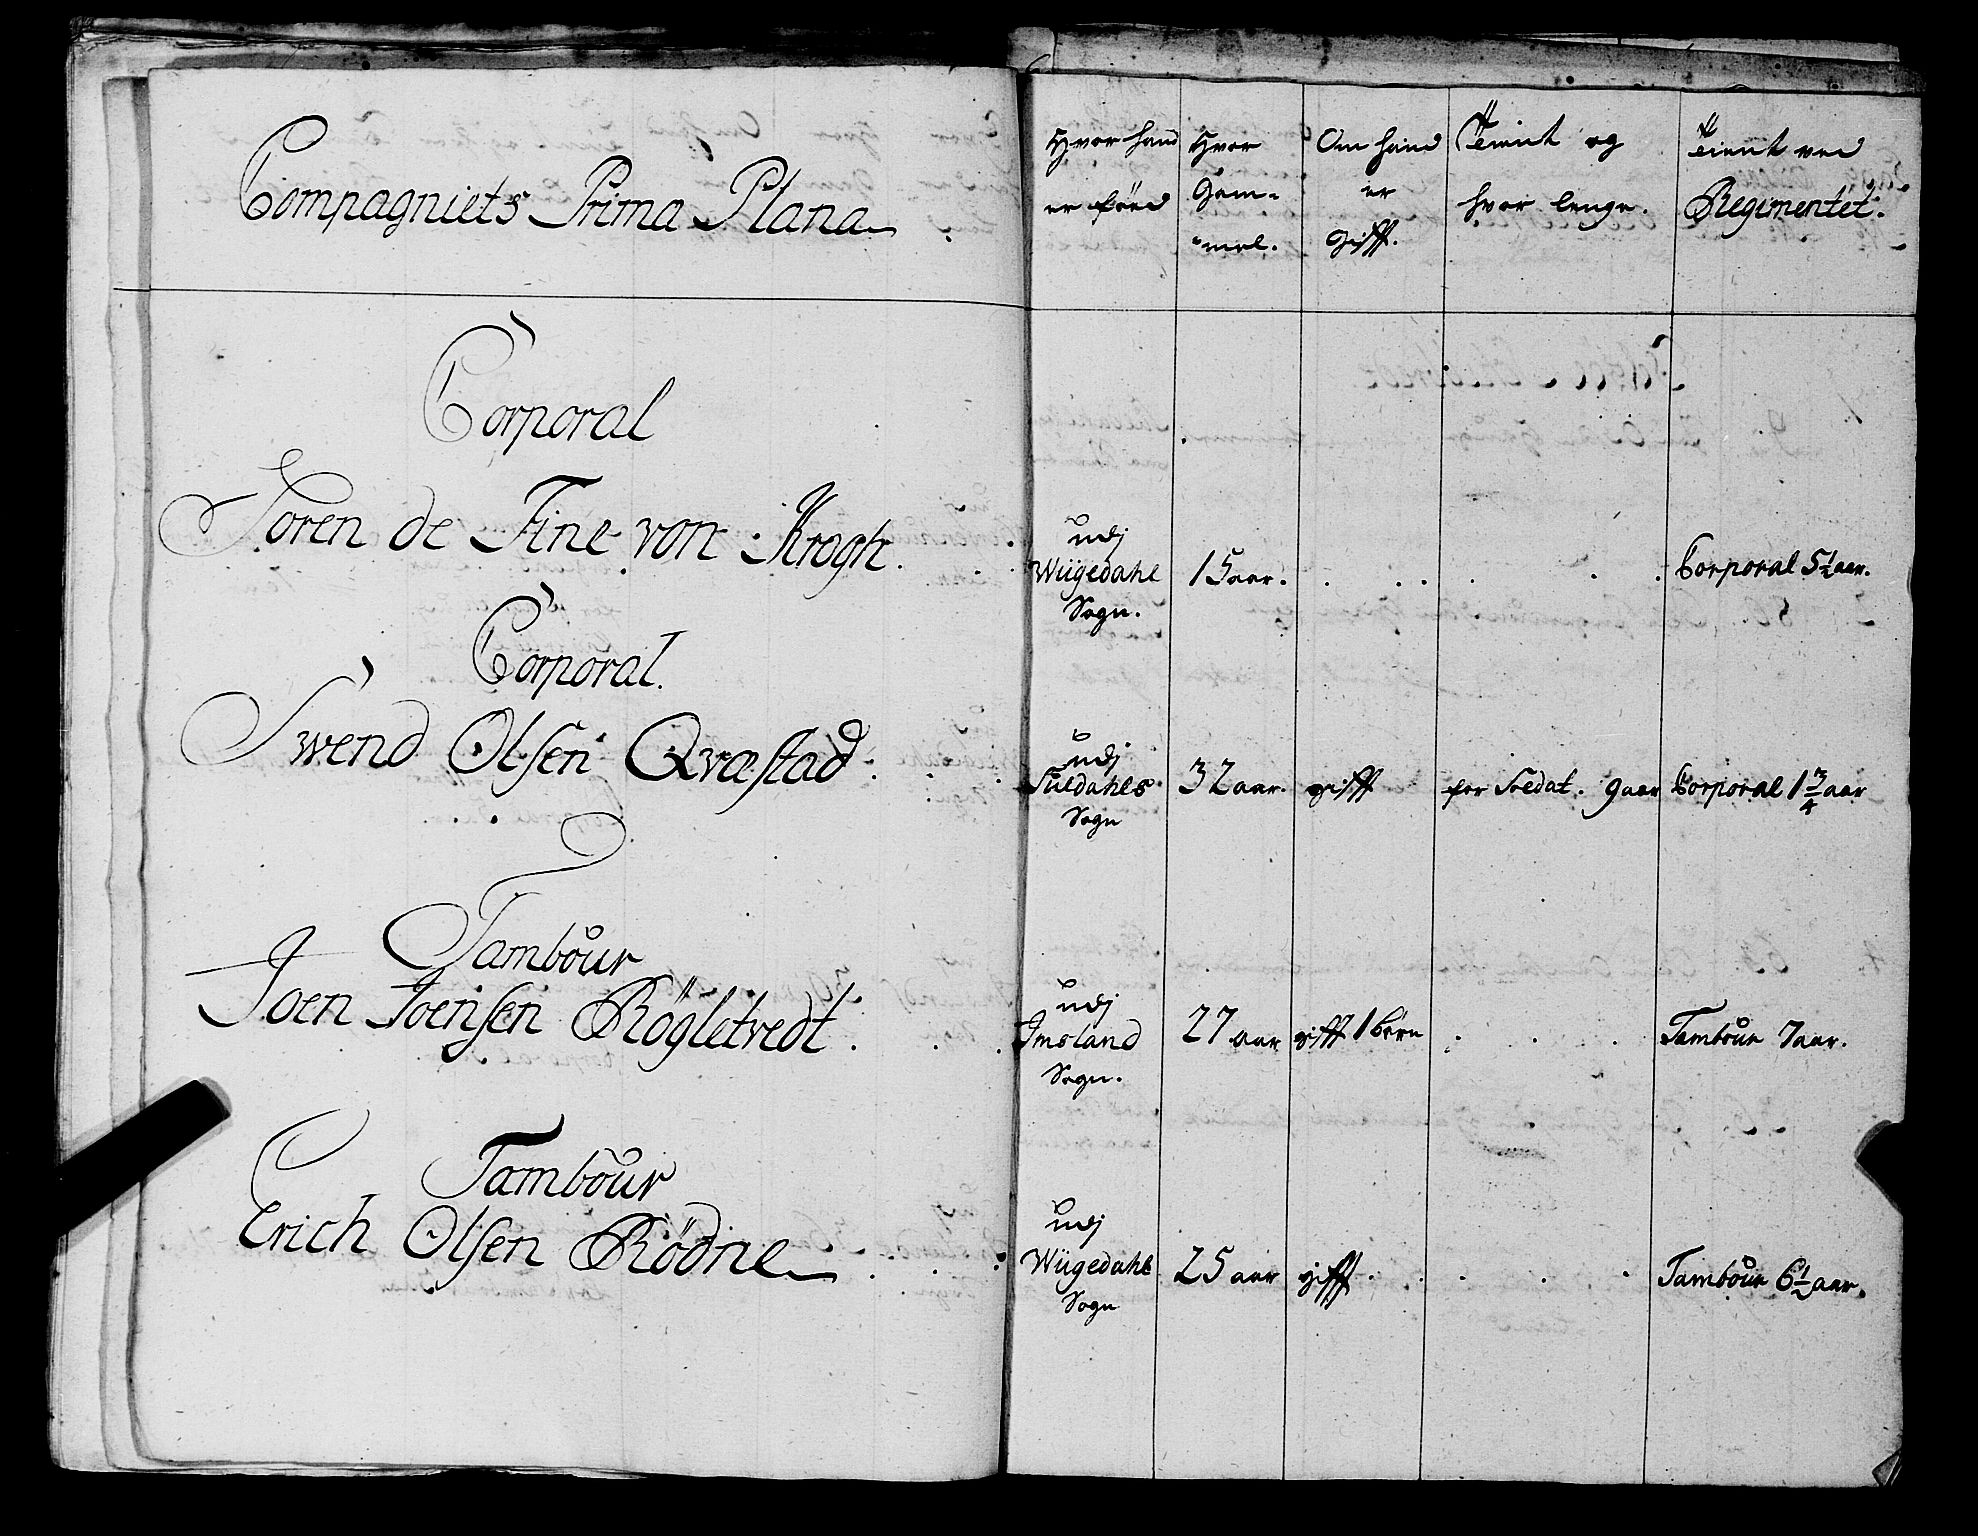 Compagniets Prima Plana
Hvor hand
er föed
Hvor
Gam-
mel.
Om hand
er
gifft.
Tient og
hvor lenge.
Tient ved
Regimentet.
Corporal
Soren de Fine von Krogh.
udj
Wiigedahl
Sogn.
15 aar.
Corporal 5½ aar.
Corporal.
Swend Olsen Qvæstad
udj
Suldahls
Sogn
32 aar.
gifft
for Soldat. 9 aar
Corporal 1 3/4 aar
Tambour
Joen Joensen Rögletvedt.
udj
Imsland
Sogn.
27 aar
gifft 1 barn
Tambour 7 aar.
Tambour
Erich Olsen Rödne
udj
Wiigedahl
Sogn
25 aar
gifft.
Tambour 6½ aar.